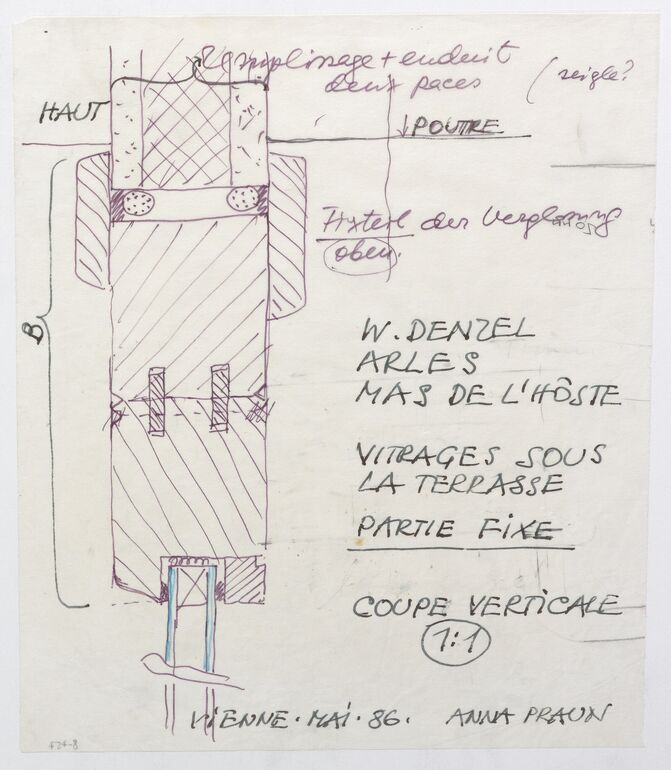 Remplissage + enduit
deux faces
(seigle?
HAUT
↓POUTRE
der Verglasung
oben.
B
W. DENZEL
ARLES
MAS DE L'HÔSTE
VITRAGES SOUS
LA TERRASSE
PARTIE FIXE
COUPE VERTICALE
1:1
VIENNE. MAI. 86. ANNA PRAUN
424-8